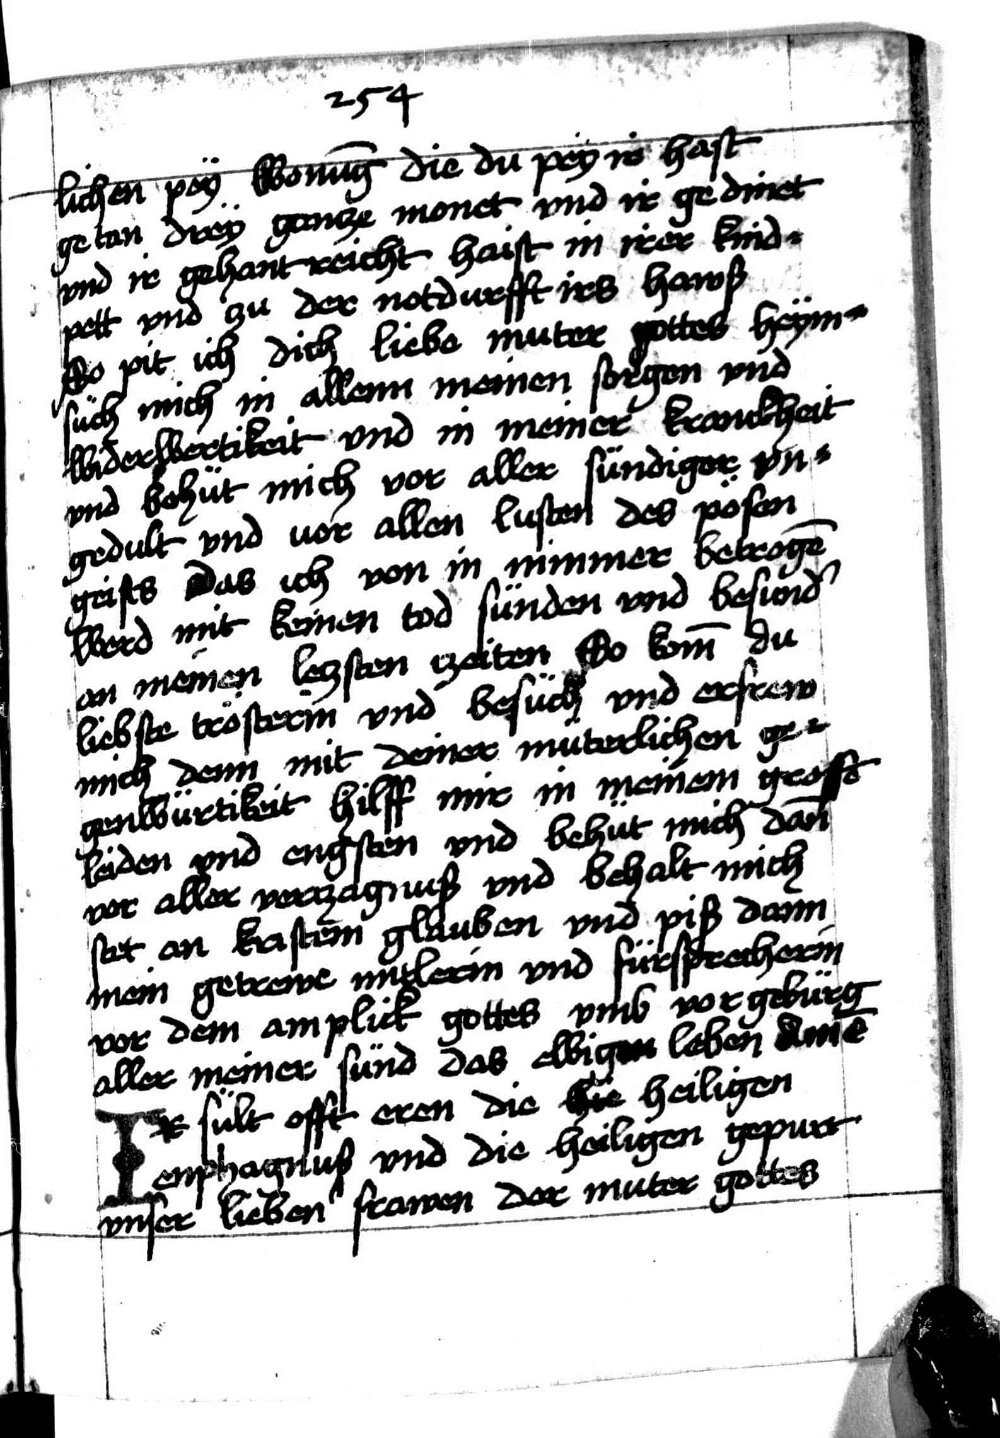 254
lichen pey wonūg die du pey ir hast
getan dreÿ gancze monet vnd ir gedinet
vnd ir gehantreicht haist in irer kind⸗
pett vnd zu der notdurfft irs hawß
So pit ich dich liebe muter gottes heÿm⸗
süch mich in allenn meinen sorgen vnd
widerwertikeit vnd in meiner kranckheit
vnd behüt mich vor aller sündiger vn⸗
gedult vnd vor allen lusten des pösen
geists Das ich von in nimmer betrogē
werd mit keinen tod sünden vnd besund'
an meinen leczsten czeiten So kom̄ du
liebste trösterin vnd besüch vnd erfrew
mich denn mit deiner muterlichen ge⸗
genwürtikeit hilff mir in meinem grosse
leiden vnd engsten vnd behüt mich dan̄
vor aller verczagnuß vnd behalt mich
stet an kristem glauben vnd piß dann
mein getrewe mitlerin vnd fürsprecherin
vor dem amplick gottes vmb vorgebürg
aller meiner sünd das ewigen leben Amē
Ir sült offt eren die hie heiligen
enphagnuß vnd die heiligen gepurt
vnser lieben frawen der muter gottes